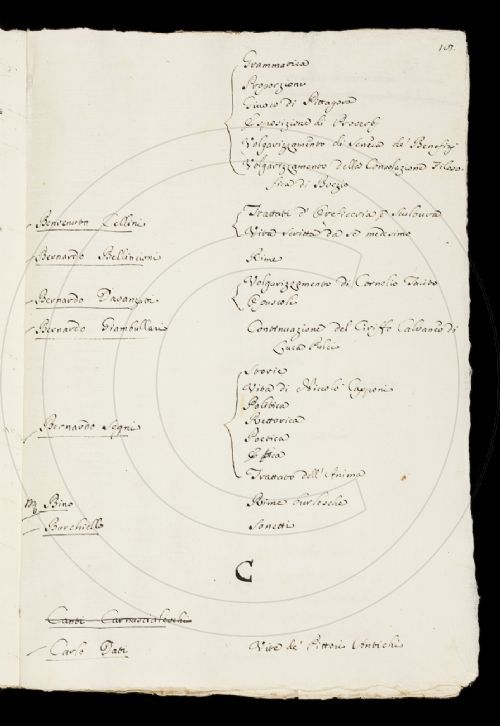 Grammatica
Proporzioni
Giuoco di Pittagora
Esposizione di Proverbj
Volgarizzamento di Seneca de' Benefizj
Volgarizzamento della Consolazione Filoso-
fica di Boezio
Benvenuto Cellini
Trattati d'Oreficeria e Scultura
Vita scritta da se medesimo
Bernardo Bellincioni
Rime
Bernardo Davanzati
Volgarizzamento di Cornelio Tacito
Opuscoli
Bernardo Giambullari
Continuazione del Ciriffo Calvaneo di
Luca Pulci
Bernardo Segni
Storie
Vita di Niccolò Capponi
Politica
Rettorica
Poetica
Etica
Trattato dell'Anima
Bino
Rime burlesche
Burchiello
Sonetti
C
Canti Carnascialeschi
Carlo Dati
Vite de' Pittori Antichi